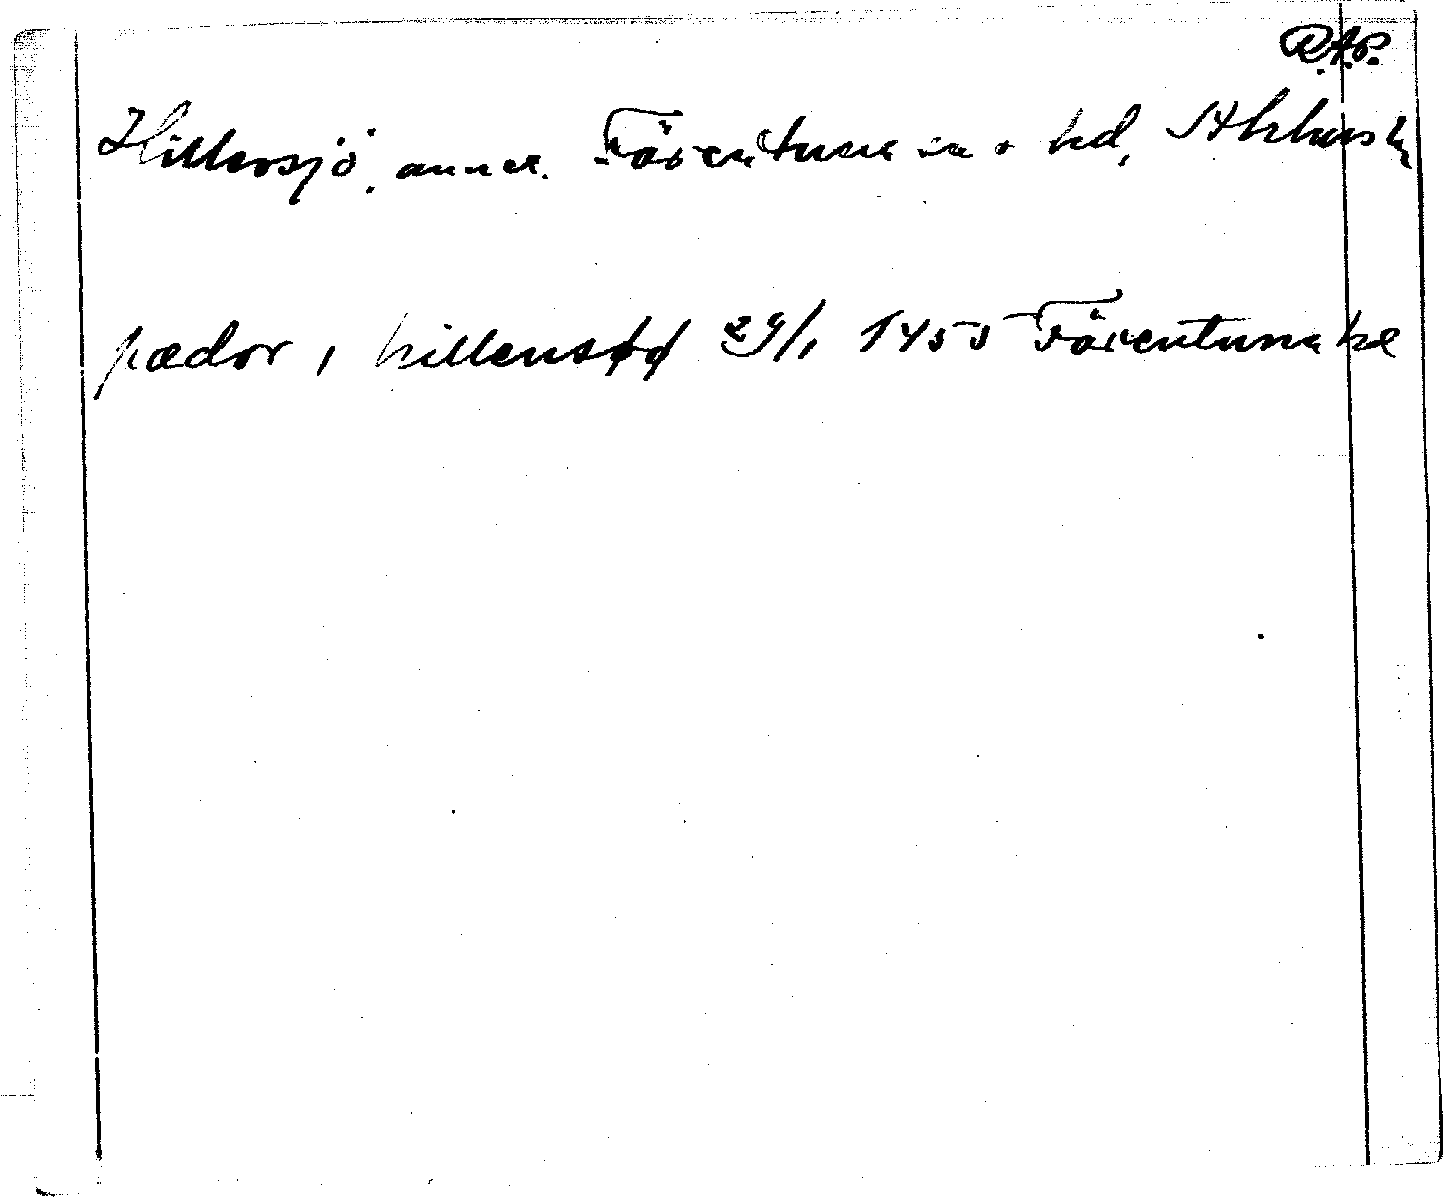 R.A.P.
Hillersjö, annex. Färentuna sn o hd, Sthlms l
pædor i hillensøø 29/1 1455 Färentuna ke